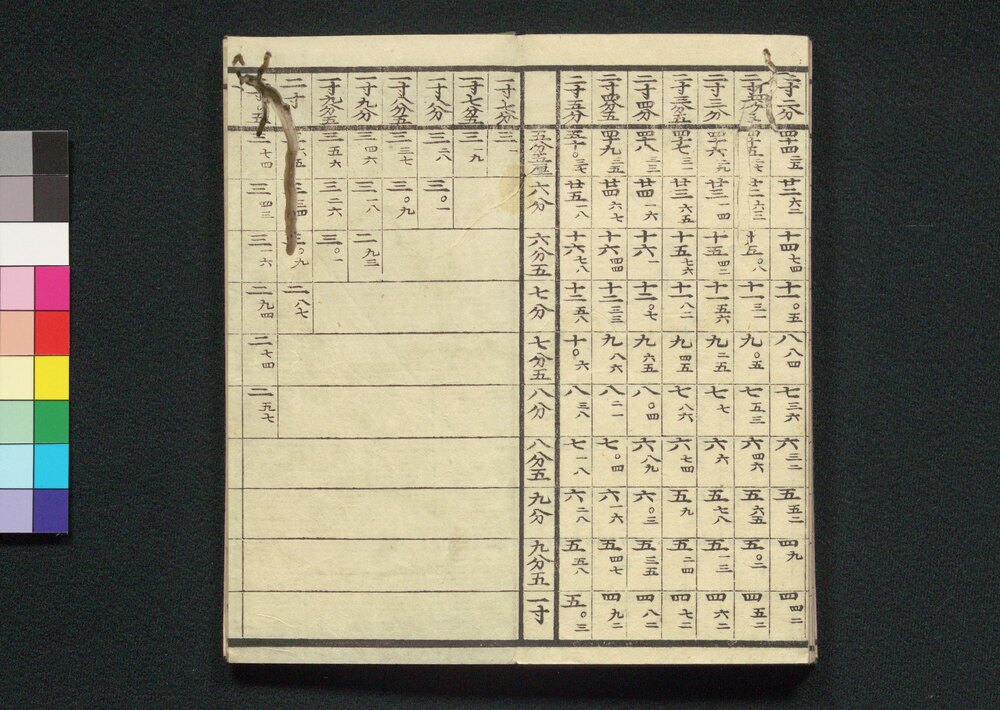 二寸二分 四十四二五 廿二六二 十四七四 十一〇五 八八四 七三六 六三二 五五二 四九 四四二
十五〇八 十一三一 九〇五 七五三 六四六 五六五 五〇二 四五二
二寸三分 四十六二九 廿三一四 十五四二 十一五六 九二五 七七 六六 五七八 五一三 四六二
二寸三分五 四十七三一 廿三六五 十五七六 十一八二 九四五 七八六 六七四 五九 五二四 四七二
二寸四分 四十八三三 廿四一六 十六一 十二〇七 九六五 八〇四 六八九 六〇三 五三五 四八二
二寸四分五 四十九三五 廿四六七 十六四四 十二三三 九八六 八二一 七〇四 六一六 五四七 四九二
二寸五分 五十〇三七 廿五一八 十六七八 十二五八 十〇六 八三八 七一八 六二八 五五八 五〇三
五分五厘 六分 六分五 七分 七分五 八分 八分五 九分 九分五 一寸
一寸七分 三
一寸七分五 三一九
一寸八分 三二八 三〇一
一寸八分五 三三七 三〇九
一寸九分 三四六 三一八 二九三
一寸九分五 三五六 三二六 三〇一
二寸 三六五 三三四 三〇九 二八七
三七四 三四三 三一六 二九四 二七四 二五七